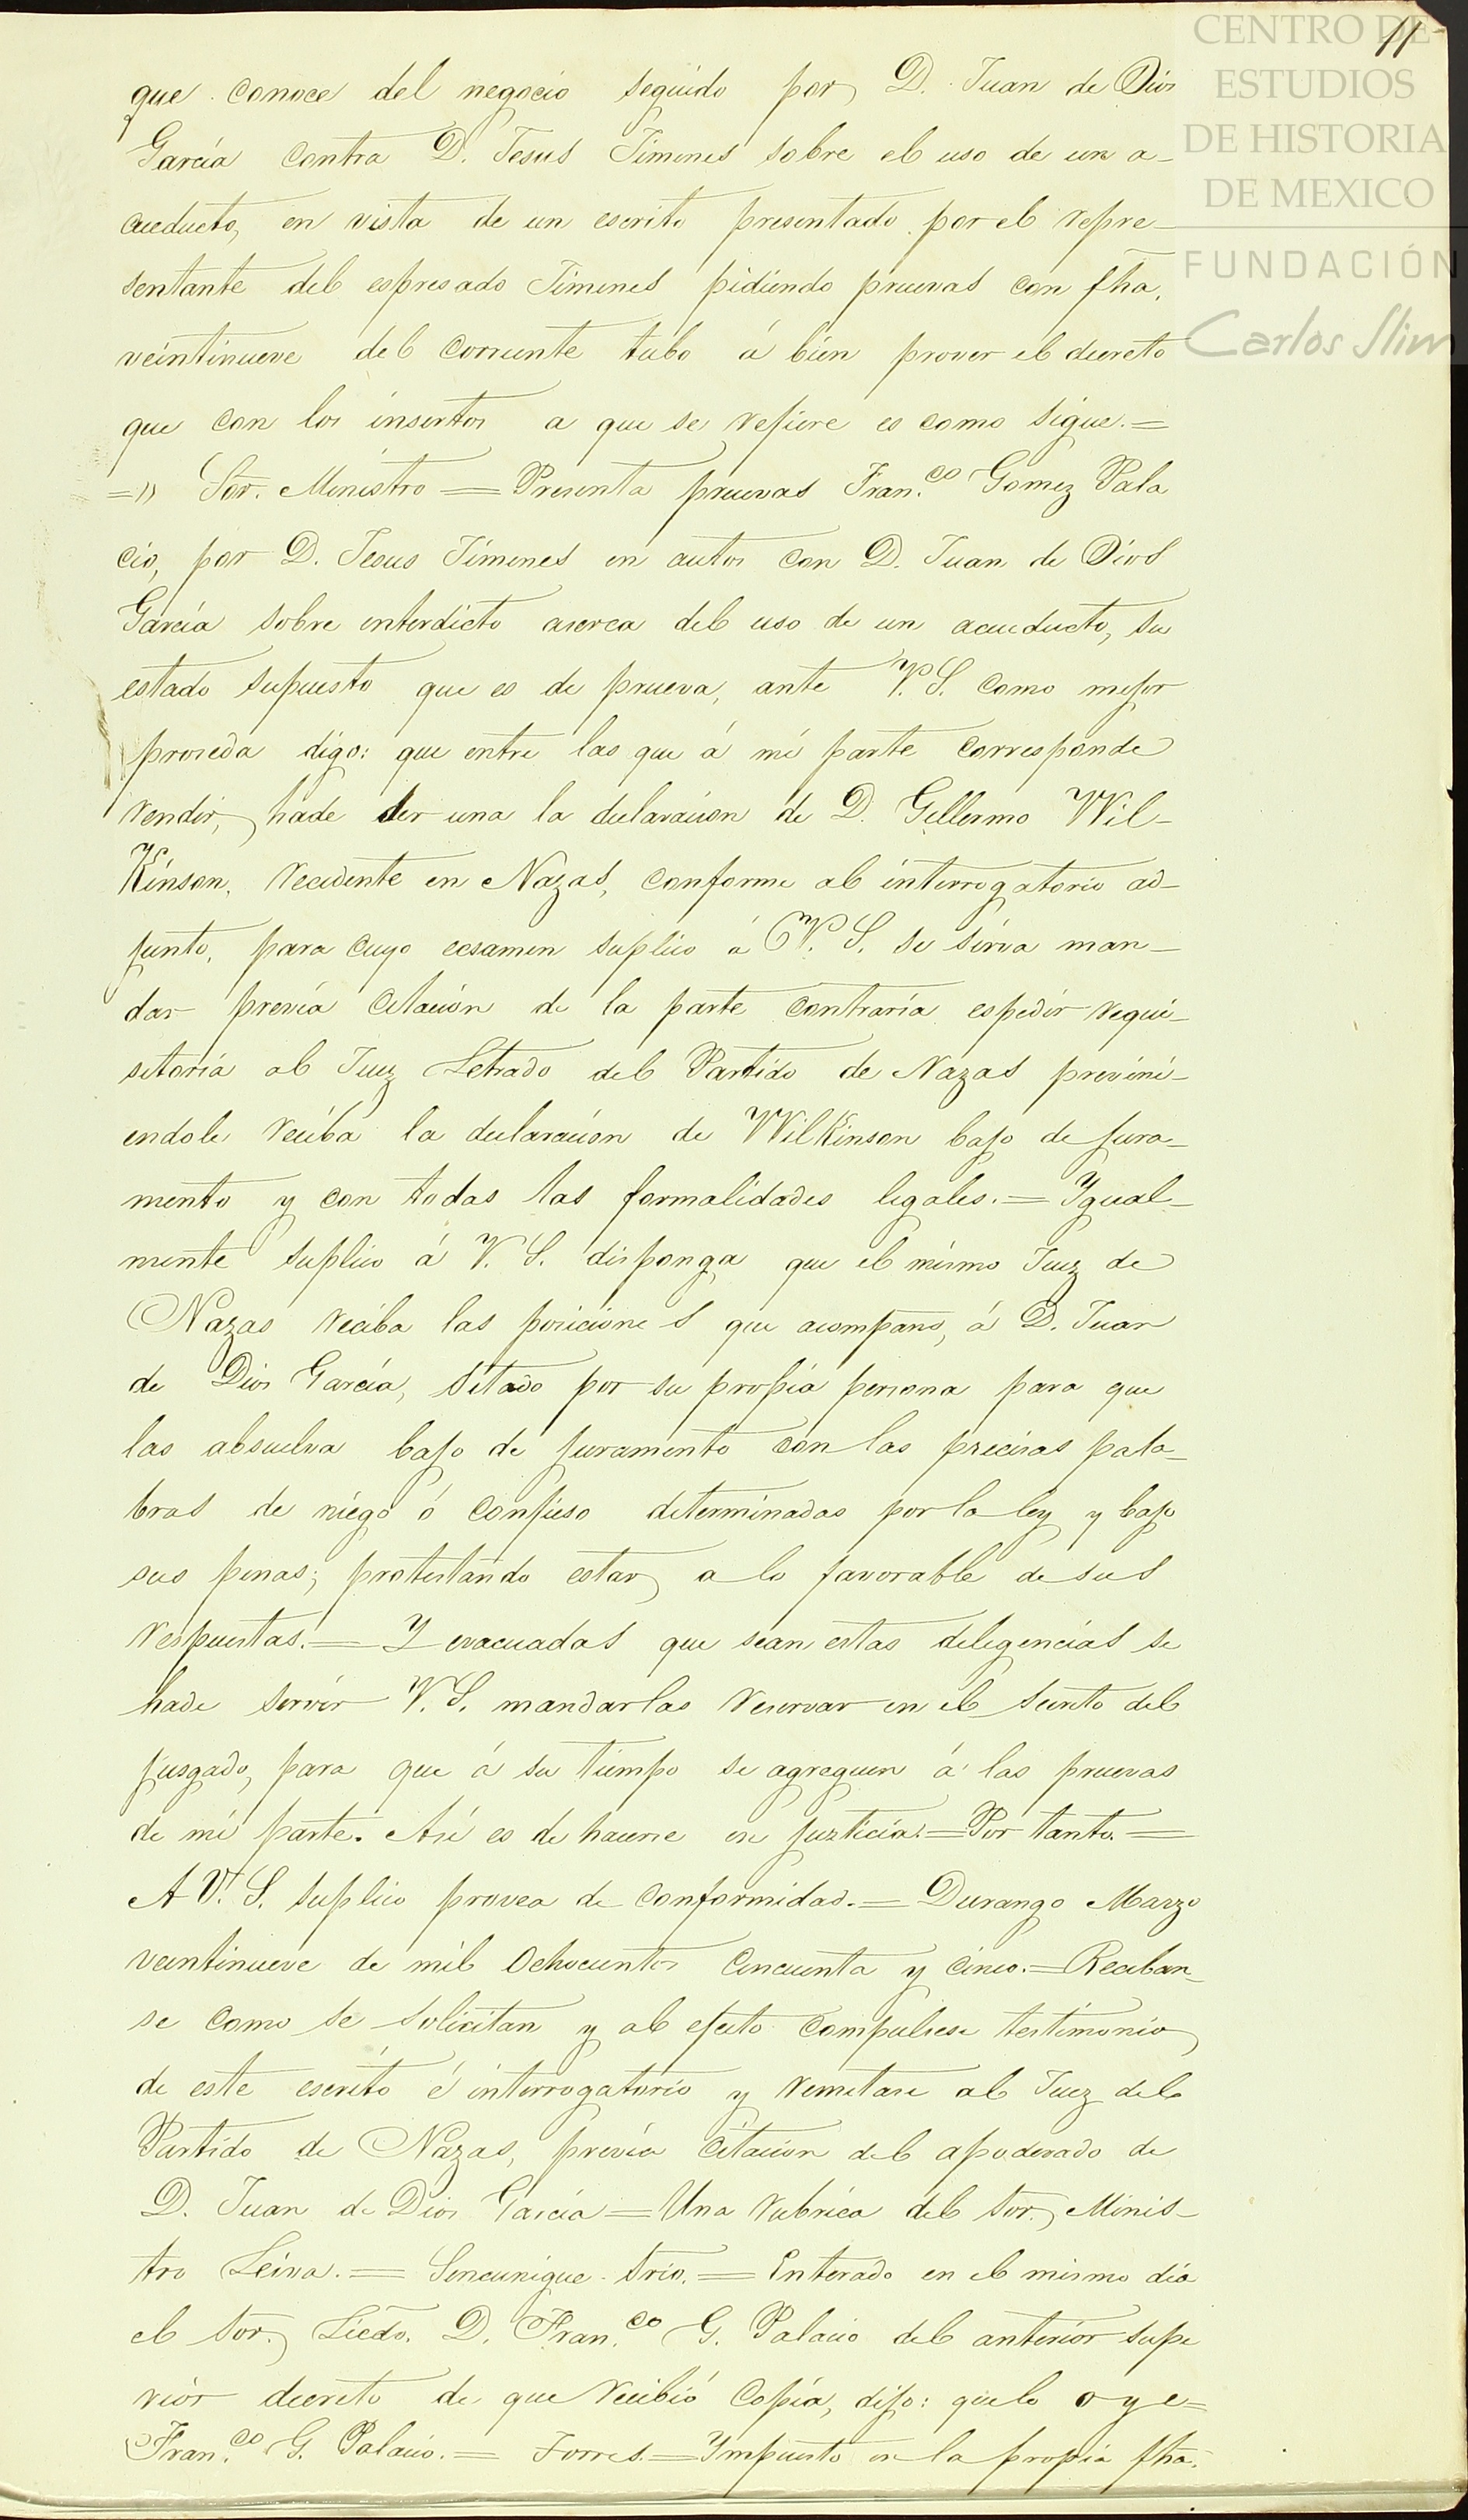 11
CENTRO DE
ESTUDIOS
DE HISTORIA
DE MEXICO
FUNDACIÓN
Carlos Slim
que conoce del negocio seguido por D. Juan de Dios
García contra D. Jesus Jimenes sobre el uso de un a-
cueducto, en vista de un escrito presentado por el repre-
sentante del espresado Jimenes pidiendo pruevas con fha.
veintinueve del corriente tubo á bien prover el decreto
que con los insertos a que se refiere es como sigue.=
=» Sor. Ministro = Presenta pruevas Fran.co Gomez Pala
cio, por D. Jesus Jimenes en autos con D. Juan de Dios
García sobre interdicto acerca del uso de un acueducto, su
estado supuesto que es de prueva, ante V.S. como mejor
proceda digo: que entre las que á mi parte corresponde
rendir, hade ser una la declaracion de D. Gillermo Wil-
Kinson, recidente en Nazas, conforme al interrogatorio ad-
junto, para cuyo ecsamen suplico á V. S. se sirva man-
dar previa citacion de la parte contraria espedir requi-
sitoria al Juez Letrado del Partido de Nazas previni-
endole reciba la declaracion de WilKinson bajo de jura-
mento y con todas las formalidades legales.= Ygual-
mente suplico á V. S. disponga que el mismo Juez de
Nazas reciba las posiciones que acompaño, á D. Juan
de Dios García, sitado por su propia persona para que
las absuelva bajo de juramento con las precisas pala-
bras de niego ó confieso determinadas por la ley y bajo
sus penas; protestando estar a lo favorable de sus
respuestas.= Y evacuadas que sean estas deligencias se
hade servir V. S. mandarlas reservar en el secreto del
jusgado, para que á su tiempo se agreguen á las pruevas
de mi parte. Asi es de hacerse en justicia.= Por tanto.=
A V. S. suplico provea de conformidad.= Durango Marzo
veintinueve de mil Ochocientos cincuenta y cinco.= Reciban-
se como se solicitan y al efecto compulsese testimonio
de este escrito é interrogatorio y remitase al Juez del
Partido de Nazas, previa citacion del apoderado de
D. Juan de Dios García = Una rubrica del Sor. Minis-
tro Leiva.= Sincunigue Srio.= Enterado en el mismo dia
el Sor. Licdo. D. Fran.co G. Palacio del anterior supe
rior decreto de que recibió copia, dijo: que lo oye=
Fran.co G. Palacio.= Torres.= Ympuesto en la propia fha.